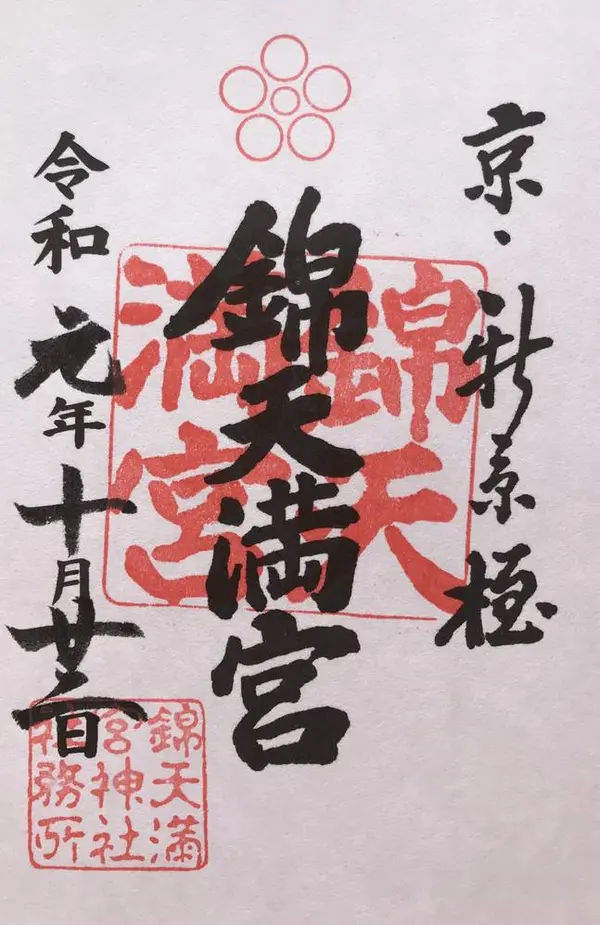 京・新京極
錦天満宮
令和元年十月廿二日
錦天
満宮
錦天満
宮神社
社務所